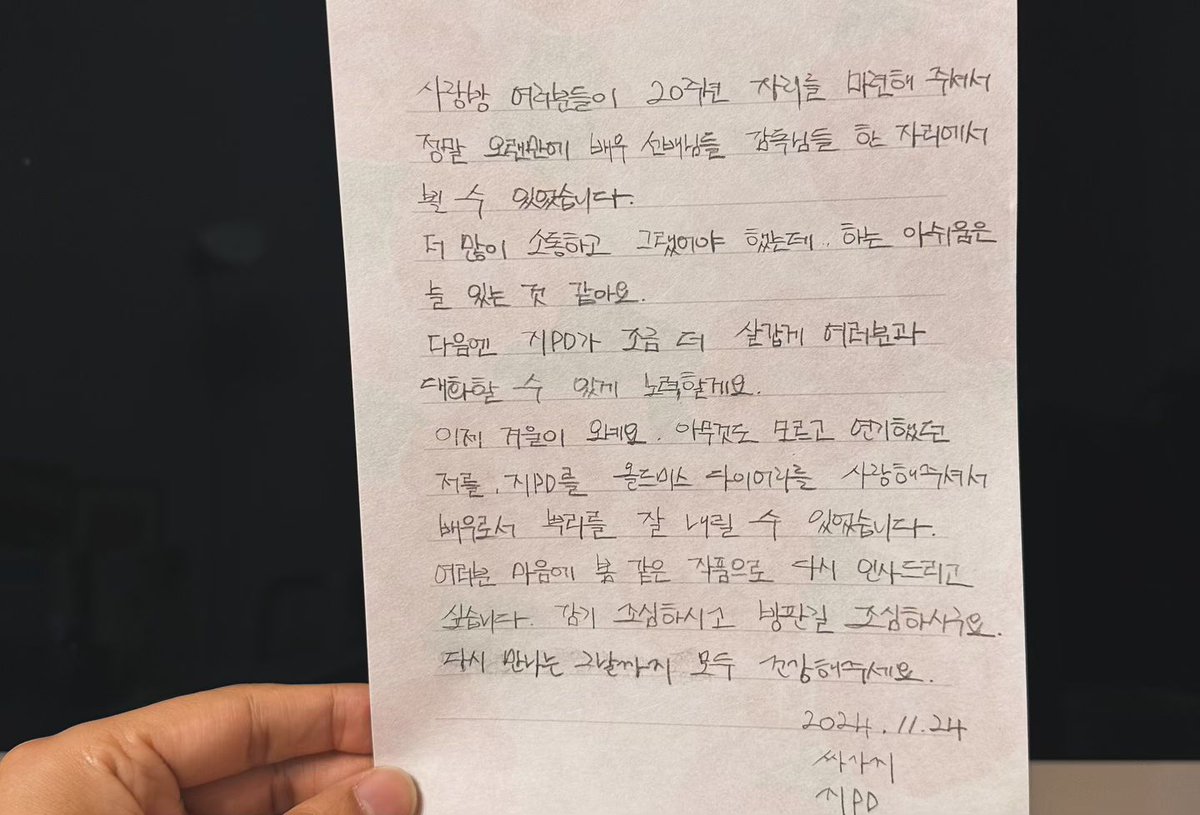 사랑방 여러분들이 20주년 자리를 마련해 주셔서
정말 오랜만에 배우 선배님들 감독님들 한 자리에서
뵐 수 있었습니다.
더 많이 소통하고 그랬어야 했는데.. 하는 아쉬움은
늘 있는 것 같아요.
다음엔 지PD가 조금 더 살갑게 여러분과
대화할 수 있게 노력할게요.
이제 겨울이 와예요. 아무것도 모르고 연기했던
저를, 지PD를 올드미스 다이어리를 사랑해주셔서
배우로서 뿌리를 잘 내릴 수 있었습니다.
여러분 마음에 봄 같은 작품으로 다시 인사드리고
싶습니다. 감기 조심하시고 빙판길 조심하시구요.
다시 만나는 그날까지 모두 건강해주세요.
2024.11.24
싸가지
지PD